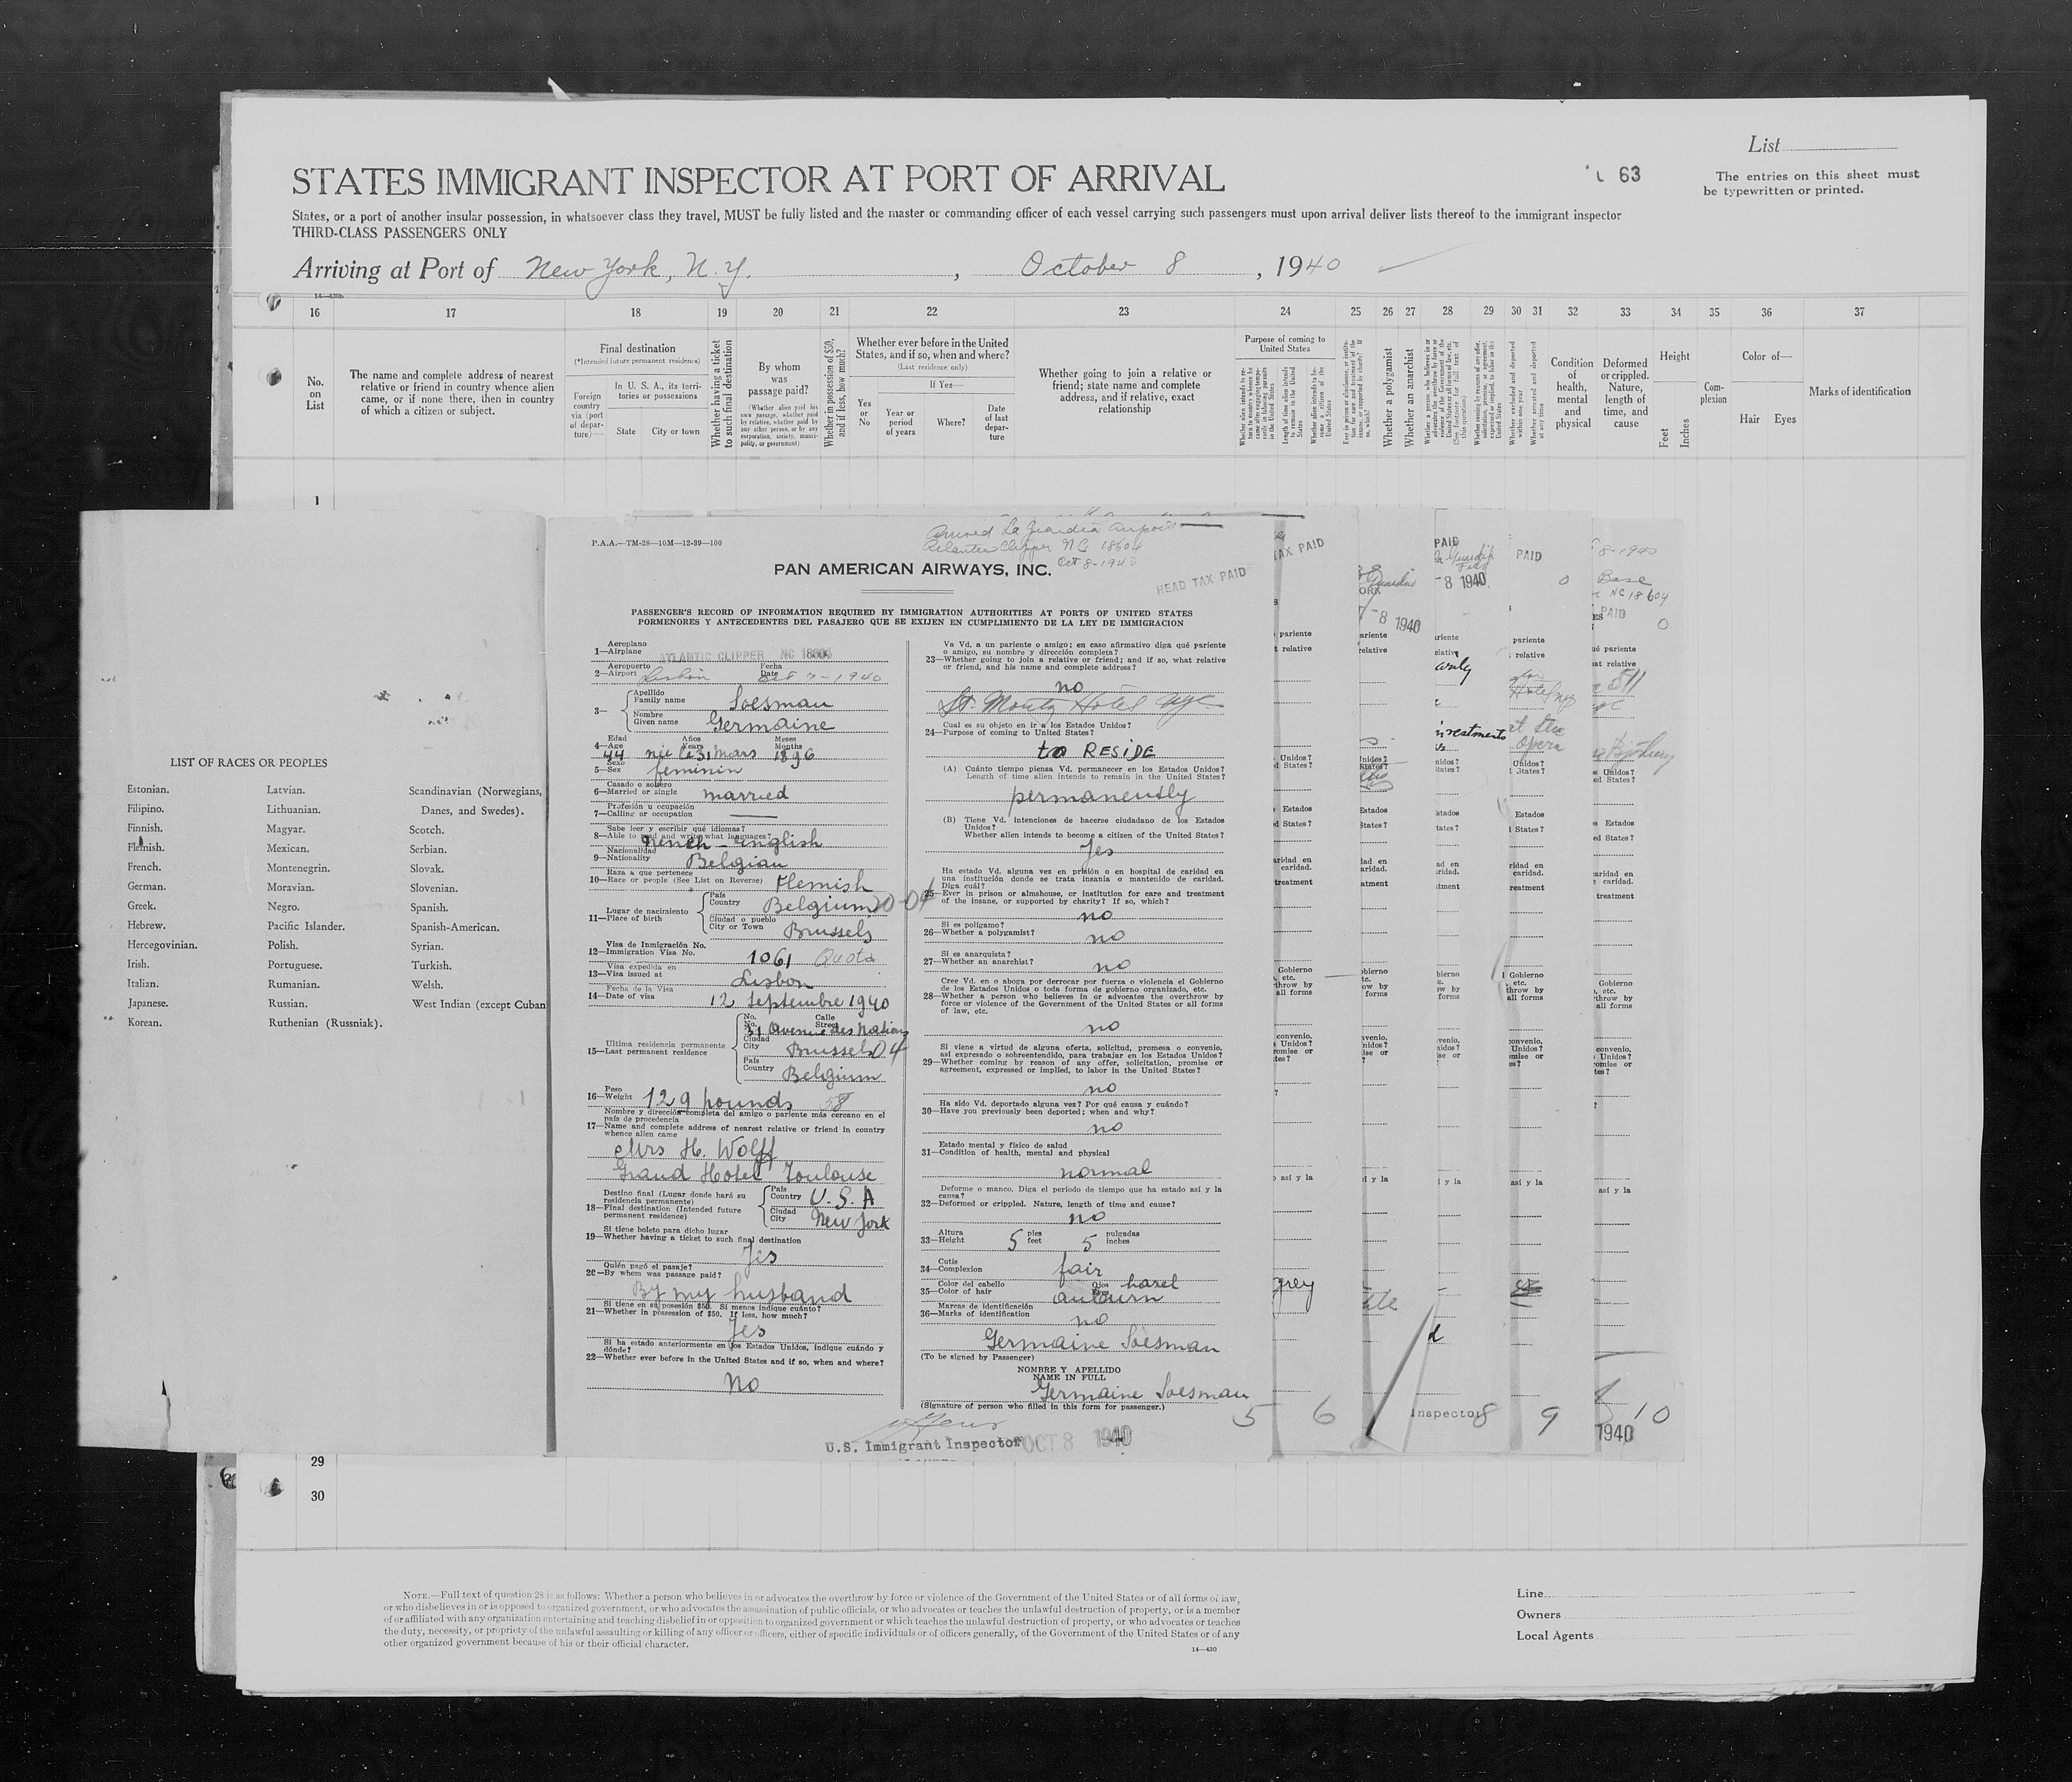 List
63
The entries on this sheet must
be typewritten or printed.
STATES IMMIGRANT INSPECTOR AT PORT OF ARRIVAL
States, or a port of another insular possession, in whatsoever class they travel, MUST be fully listed and the master or commanding officer of each vessel carrying such passengers must upon arrival deliver lists thereof to the immigrant inspector
THIRD-CLASS PASSENGERS ONLY
Arriving at Port of New York, N. Y. , October 8 , 1940
16 17 18 19 20 21 22 23 24 25 26 27 28 29 30 31 32 33 34 35 36 37
No.
on
List
The name and complete address of nearest
relative or friend in country whence alien
came, or if none there, then in country
of which a citizen or subject.
Final destination
(*Intended future permanent residence)
Foreign
country
via (port
of depar-
ture)
In U. S. A., its terri-
tories or possessions
State
City or town
Whether having a ticket
to such final destination
By whom
was
passage paid?
(Whether alien paid his
own passage, whether paid
by relative, whether paid by
any other person, or by any
corporation, society, munici-
pality, or government)
Whether in possession of $50,
and if less, how much?
Whether ever before in the United
States, and if so, when and where?
(Last residence only)
Yes
or
No
If Yes—
Year or
period
of years
Where?
Date
of last
depar-
ture
Whether going to join a relative or
friend; state name and complete
address, and if relative, exact
relationship
Purpose of coming to
United States
Whether a polygamist
Whether an anarchist
Condition
of
health,
mental
and
physical
Deformed
or crippled.
Nature,
length of
time, and
cause
Height
Feet
Inches
Com-
plexion
Color of—
Hair
Eyes
Marks of identification
1
LIST OF RACES OR PEOPLES
Estonian. Latvian. Scandinavian (Norwegians,
Filipino. Lithuanian. Danes, and Swedes).
Finnish. Magyar. Scotch.
Flemish. Mexican. Serbian.
French. Montenegrin. Slovak.
German. Moravian. Slovenian.
Greek. Negro. Spanish.
Hebrew. Pacific Islander. Spanish-American.
Hercegovinian. Polish. Syrian.
Irish. Portuguese. Turkish.
Italian. Rumanian. Welsh.
Japanese. Russian. West Indian (except Cuban
Korean. Ruthenian (Russniak).
P.A.A.—TM-28—10M—12-39—100
Arrived La Guardia Airport
Atlantic Clipper NC 18604
Oct 8-1940
PAN AMERICAN AIRWAYS, INC.
HEAD TAX PAID
PASSENGER'S RECORD OF INFORMATION REQUIRED BY IMMIGRATION AUTHORITIES AT PORTS OF UNITED STATES
PORMENORES Y ANTECEDENTES DEL PASAJERO QUE SE EXIJEN EN CUMPLIMIENTO DE LA LEY DE IMMIGRACION
Aeroplano
1—Airplane ATLANTIC CLIPPER NC 18604
Aeropuerto Fecha
2—Airport Lisbon Date Oct 7-1940
3—
Apellido
Family name Soesman
Nombre
Given name Germaine
Edad Años Meses
4—Age Years Months
44 née le 31 Mars 1896
Sexo
5—Sex feminin
Casado o soltero
6—Married or single married
Profesión u ocupación
7—Calling or occupation
Sabe leer y escribir qué idiomas?
8—Able to read and write what languages?
French - English
Nacionalidad
9—Nationality Belgian
Raza a que pertenece
10—Race or people (See List on Reverse) Flemish
Lugar de nacimiento
11—Place of birth
País
Country Belgium 20-04
Ciudad o pueblo
City or Town Brussels
Visa de Inmigración No.
12—Immigration Visa No. 1061 Quota
Visa expedida en
13—Visa issued at Lisbon
Fecha de la Visa
14—Date of visa 12 Septembre 1940
Ultima residencia permanente
15—Last permanent residence
No. Calle
No. Street
51 Avenue des Nations
Ciudad
City Brussels 04
País
Country Belgium
Peso
16—Weight 129 pounds 58
Nombre y dirección completa del amigo o pariente más cercano en el
país de procedencia
17—Name and complete address of nearest relative or friend in country
whence alien came
Mrs H. Wolff
Grand Hotel Toulouse
Destino final (Lugar donde hará su
residencia permanente)
18—Final destination (Intended future
permanent residence)
País
Country U. S. A
Ciudad
City New York
Si tiene boleto para dicho lugar
19—Whether having a ticket to such final destination
Yes
Quién pagó el pasaje?
20—By whom was passage paid?
By my husband
Si tiene en su posesión $50. Si menos indique cuánto?
21—Whether in possession of $50. If less, how much?
Yes
Si ha estado anteriormente en los Estados Unidos, indique cuándo y
dónde?
22—Whether ever before in the United States and if so, when and where?
No
Va Vd. a un pariente o amigo; en caso afirmativo diga qué pariente
o amigo, su nombre y dirección completa?
23—Whether going to join a relative or friend; and if so, what relative
or friend, and his name and complete address?
no
St. Moritz Hotel NYC
Cual es su objeto en ir a los Estados Unidos?
24—Purpose of coming to United States?
to RESIDE
(A) Cuánto tiempo piensa Vd. permanecer en los Estados Unidos?
Length of time alien intends to remain in the United States?
permanently
(B) Tiene Vd. intenciones de hacerse ciudadano de los Estados
Unidos?
Whether alien intends to become a citizen of the United States?
Yes
Ha estado Vd. alguna vez en prisión o en hospital de caridad en
una institución donde se trata insania o mantenido de caridad.
Diga cuál?
25—Ever in prison or almshouse, or institution for care and treatment
of the insane, or supported by charity? If so, which?
no
Si es polígamo?
26—Whether a polygamist?
no
Si es anarquista?
27—Whether an anarchist?
no
Cree Vd. en o aboga por derrocar por fuerza o violencia el Gobierno
de los Estados Unidos o toda forma de gobierno organizado, etc.
28—Whether a person who believes in or advocates the overthrow by
force or violence of the Government of the United States or all forms
of law, etc.
no
Si viene a virtud de alguna oferta, solicitud, promesa o convenio,
así expresado o sobreentendido, para trabajar en los Estados Unidos?
29—Whether coming by reason of any offer, solicitation, promise or
agreement, expressed or implied, to labor in the United States?
no
Ha sido Vd. deportado alguna vez? Por qué causa y cuándo?
30—Have you previously been deported; when and why?
no
Estado mental y físico de salud
31—Condition of health, mental and physical
normal
Deforme o manco. Diga el período de tiempo que ha estado así y la
causa?
32—Deformed or crippled. Nature, length of time and cause?
no
Altura pies pulgadas
33—Height 5 feet 5 inches
Cutis
34—Complexion fair
Color del cabello Ojos hazel
35—Color of hair auburn Eyes
Marcas de identificación
36—Marks of identification no
Germaine Soesman
(To be signed by Passenger)
NOMBRE Y APELLIDO
NAME IN FULL
Germaine Soesman
(Signature of person who filled in this form for passenger.)
U.S. Immigrant Inspector OCT 8 1940
5 6 Inspector 8 9 10
1940
29
30
NOTE.—Full text of question 28 is as follows: Whether a person who believes in or advocates the overthrow by force or violence of the Government of the United States or of all forms of law,
or who disbelieves in or is opposed to organized government, or who advocates the assassination of public officials, or who advocates or teaches the unlawful destruction of property, or is a member
of or affiliated with any organization entertaining and teaching disbelief in or opposition to organized government or which teaches the unlawful destruction of property, or who advocates or teaches
the duty, necessity, or propriety of the unlawful assaulting or killing of any officer or officers, either of specific individuals or of officers generally, of the Government of the United States or of any
other organized government because of his or their official character.
14—430
Line
Owners
Local Agents